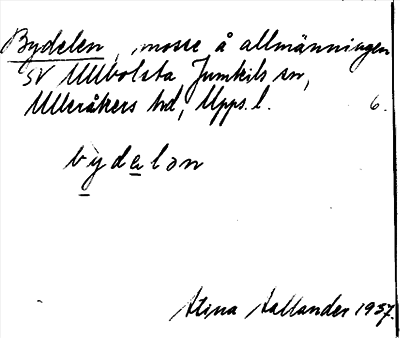 Bydelen, mosse å allmänningen
SV Ullbolsta Jumkils sn,
Ulleråkers hd, Upps. l. 6.
by̆delən
Stina Hallander 1937.